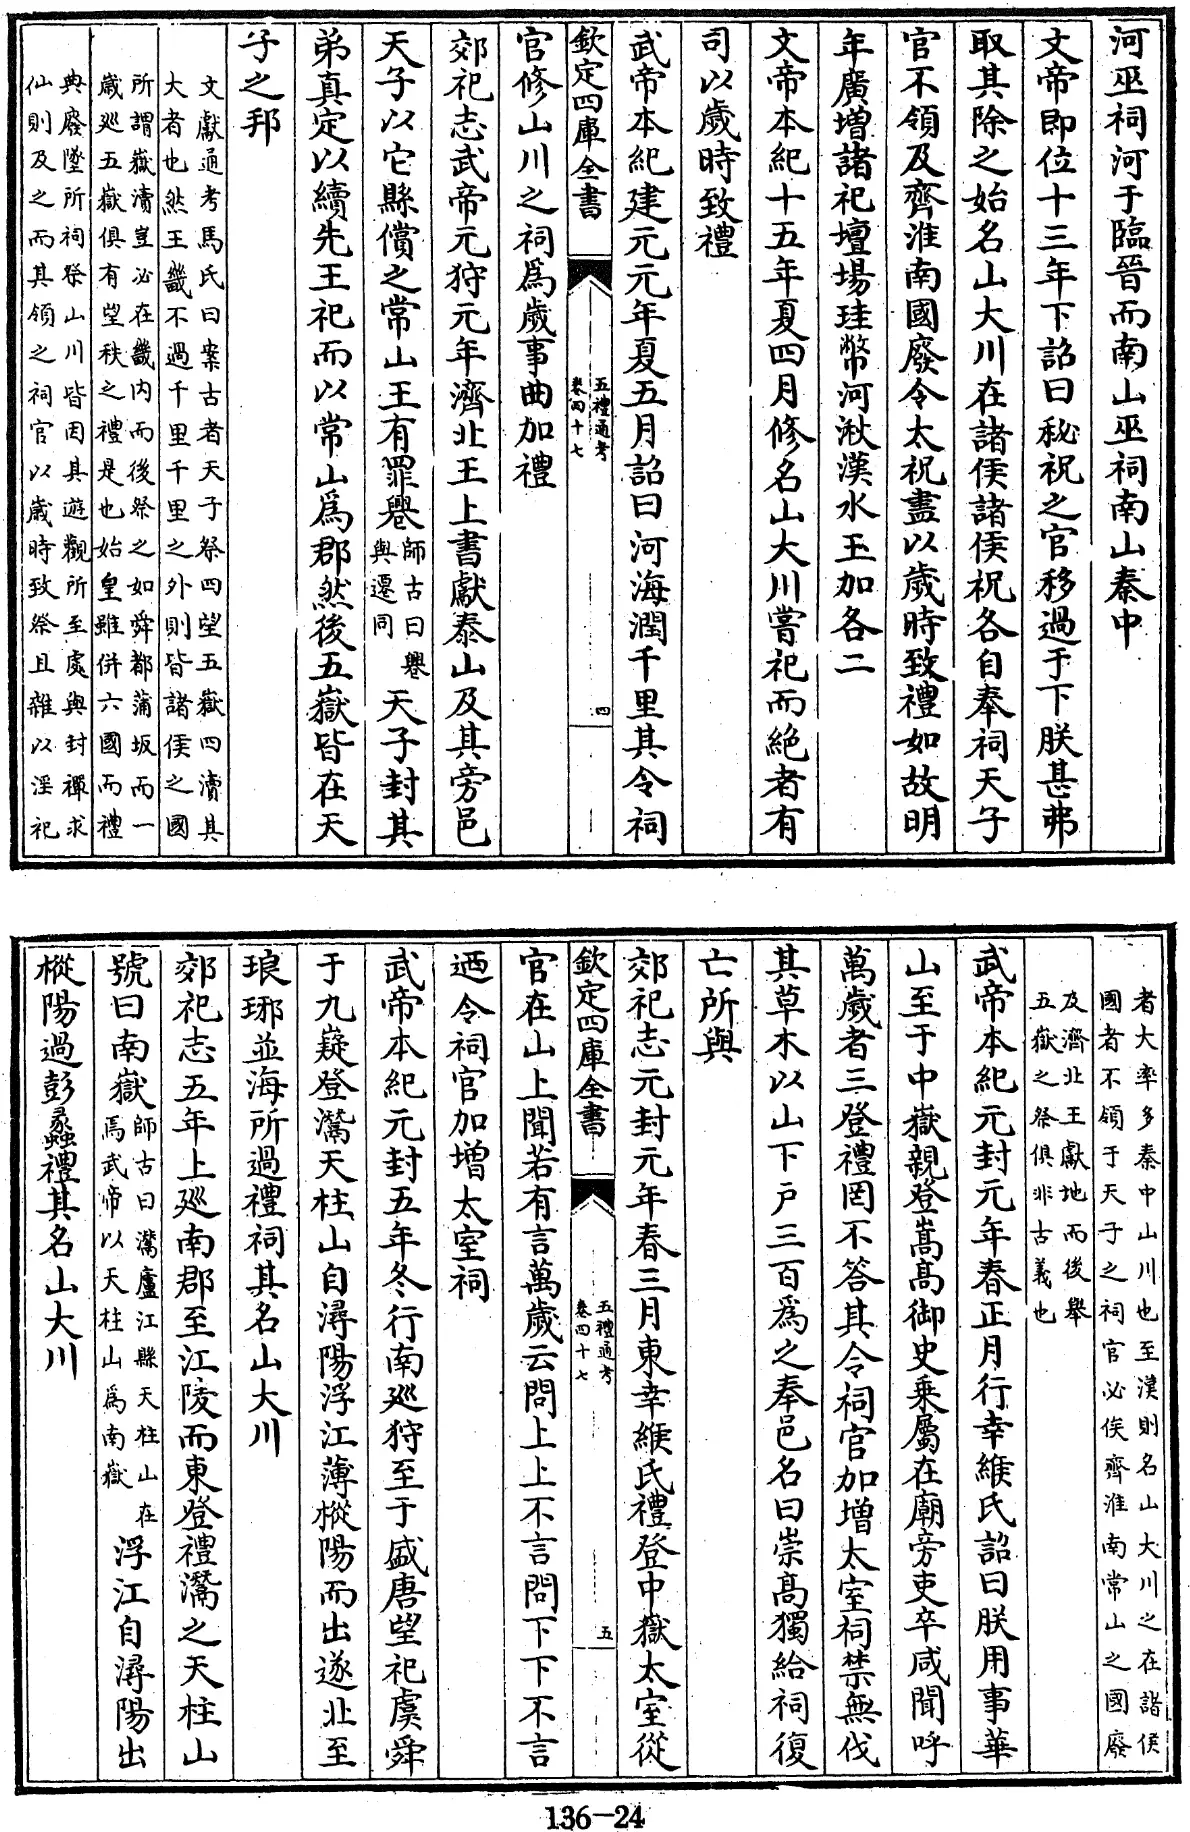 河巫祠河于臨晉而南山巫祠南山秦中
文帝即位十三年下詔曰秘祝之官移過于下朕甚弗
取其除之始名山大川在諸侯諸侯祝各自奉祠天子
官不領及齊淮南國廢令太祝盡以歲時致禮如故明
年廣增諸祀壇場珪幣河湫漢水玉加各二
文帝本紀十五年夏四月修名山大川嘗祀而絶者有
司以歲時致禮
武帝本紀建元元年夏五月詔曰河海潤千里其令祠
欽定四庫全書
五禮通考
卷四十七
四
官修山川之祠爲歲事曲加禮
郊祀志武帝元狩元年濟北王上書獻泰山及其旁邑
天子以它縣償之常山王有罪䙴
師古曰䙴
與遷同
天子封其
弟真定以續先王祀而以常山爲郡然後五嶽皆在天
子之邦
文獻通考馬氏曰案古者天子祭四望五嶽四瀆其
大者也然王畿不過千里千里之外則皆諸侯之國
所謂嶽瀆豈必在畿内而後祭之如舜都蒲坂而一
歲巡五嶽俱有望秩之禮是也始皇雖併六國而禮
典廢墜所祠祭山川皆因其遊觀所至處與封禪求
仙則及之而其領之祠官以歲時致祭且雜以淫祀
者大率多秦中山川也至漢則名山大川之在諸侯
國者不領于天子之祠官必俟齊淮南常山之國廢
及濟北王獻地而後舉
五嶽之祭俱非古義也
武帝本紀元封元年春正月行幸緱氏詔曰朕用事華
山至于中嶽親登嵩髙御史乘屬在廟旁吏卒咸聞呼
萬歲者三登禮罔不答其令祠官加增太室祠禁無伐
其草木以山下户三百爲之奉邑名曰崇髙獨給祠復
亡所與
郊祀志元封元年春三月東幸緱氏禮登中嶽太室從
欽定四庫全書
五禮通考
卷四十七
五
官在山上聞若有言萬歲云問上上不言問下下不言
迺令祠官加增太室祠
武帝本紀元封五年冬行南巡狩至于盛唐望祀虞舜
于九嶷登灊天柱山自潯陽浮江薄樅陽而出遂北至
琅琊並海所過禮祠其名山大川
郊祀志五年上巡南郡至江陵而東登禮灊之天柱山
號曰南嶽
師古曰灊廬江縣天柱山在
焉武帝以天柱山爲南嶽
浮江自潯陽出
樅陽過彭蠡禮其名山大川
136-24